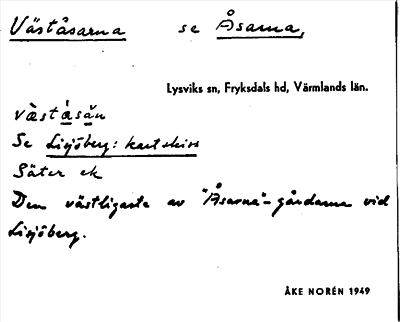 Väståsarna se Åsarna,
Lysviks sn, Fryksdals hd, Värmlands län.
väståsän
Se Lisjöberg: kartskiss
Säter ek
Den västligaste av "Åsarna"-gårdarna vid
Lisjöberg.
ÅKE NORÉN 1949